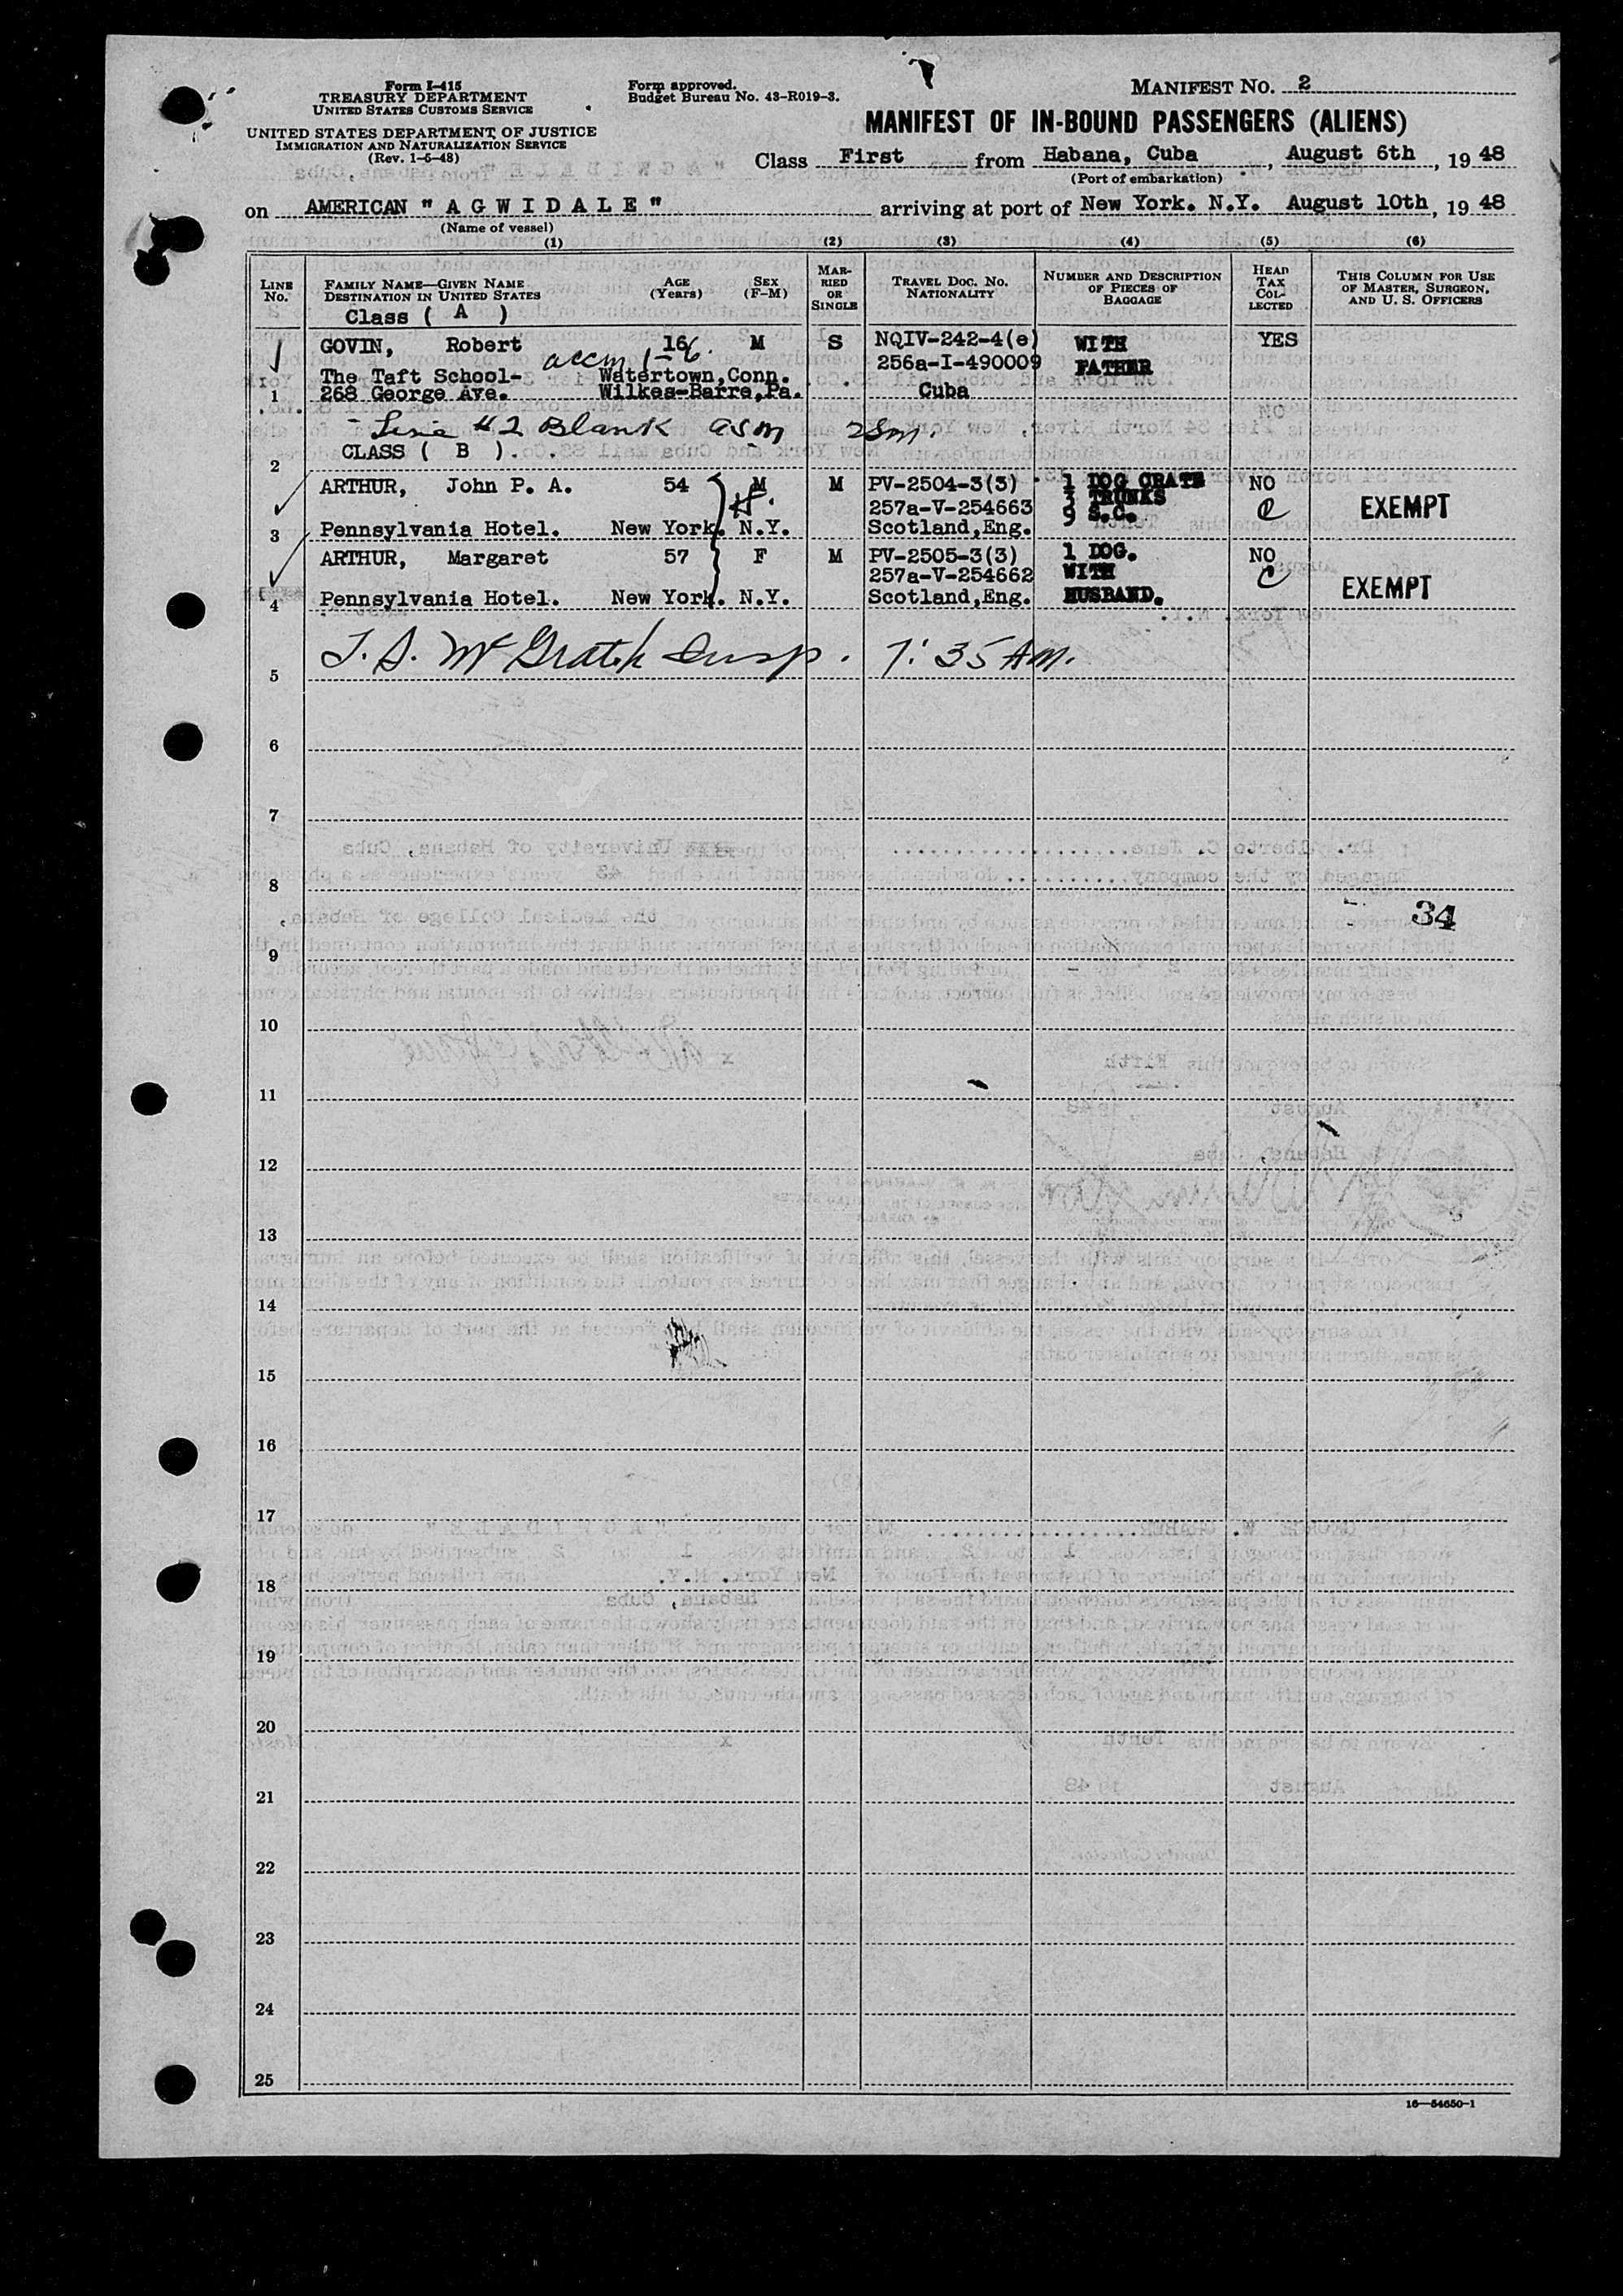 Form I-415
TREASURY DEPARTMENT
UNITED STATES CUSTOMS SERVICE
UNITED STATES DEPARTMENT OF JUSTICE
IMMIGRATION AND NATURALIZATION SERVICE
(Rev. 1-6-48)
Form approved.
Budget Bureau No. 43-R019-3.
MANIFEST NO. 2
MANIFEST OF IN-BOUND PASSENGERS (ALIENS)
Class First from Habana, Cuba, August 6th, 19 48
(Port of embarkation)
on AMERICAN "AGWIDALE" arriving at port of New York. N.Y. August 10th, 19 48
(Name of vessel)
(1) (2) (3) (4) (5) (6)
LINE NO.
FAMILY NAME—GIVEN NAME
DESTINATION IN UNITED STATES
AGE (Years)
SEX (F-M)
MARRIED OR SINGLE
TRAVEL DOC. NO. NATIONALITY
NUMBER AND DESCRIPTION OF PIECES OF BAGGAGE
HEAD TAX COLLECTED
THIS COLUMN FOR USE OF MASTER, SURGEON, AND U. S. OFFICERS
Class ( A )
GOVIN, Robert 16 M S NQIV-242-4(e) WITH YES
256a-I-490009 FATHER
The Taft School- Watertown,Conn.
1 268 George Ave. Wilkes-Barre,Pa. Cuba
Line #2 Blank asm
CLASS ( B ) . .
2
ARTHUR, John P. A. 54 M M PV-2504-3(3) 1 DOG CRATE NO
3 TRUNKS
257a-V-254663 9 S.C. EXEMPT
3 Pennsylvania Hotel. New York. N.Y. Scotland,Eng.
ARTHUR, Margaret 57 F M PV-2505-3(3) 1 DOG. NO
257a-V-254662 WITH EXEMPT
4 Pennsylvania Hotel. New York. N.Y. Scotland,Eng. HUSBAND.
5 McGrath Insp. 7:35 AM.
6
7
8
34
9
10
11
12
13
14
15
16
17
18
19
20
21
22
23
24
25
16—54650-1